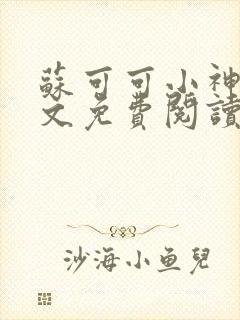 蘇可可小神
文免費閱讀
沙海小鱼兒